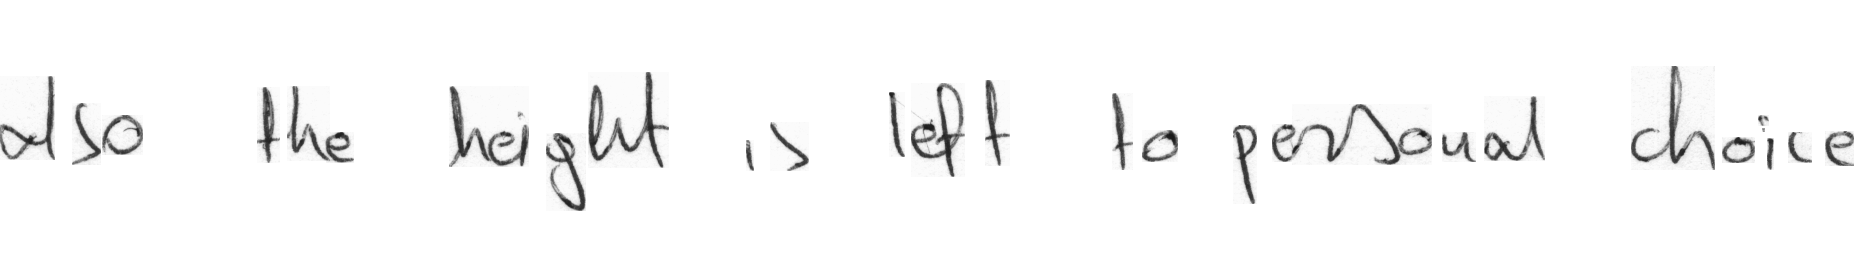 also the height is left to personal choice